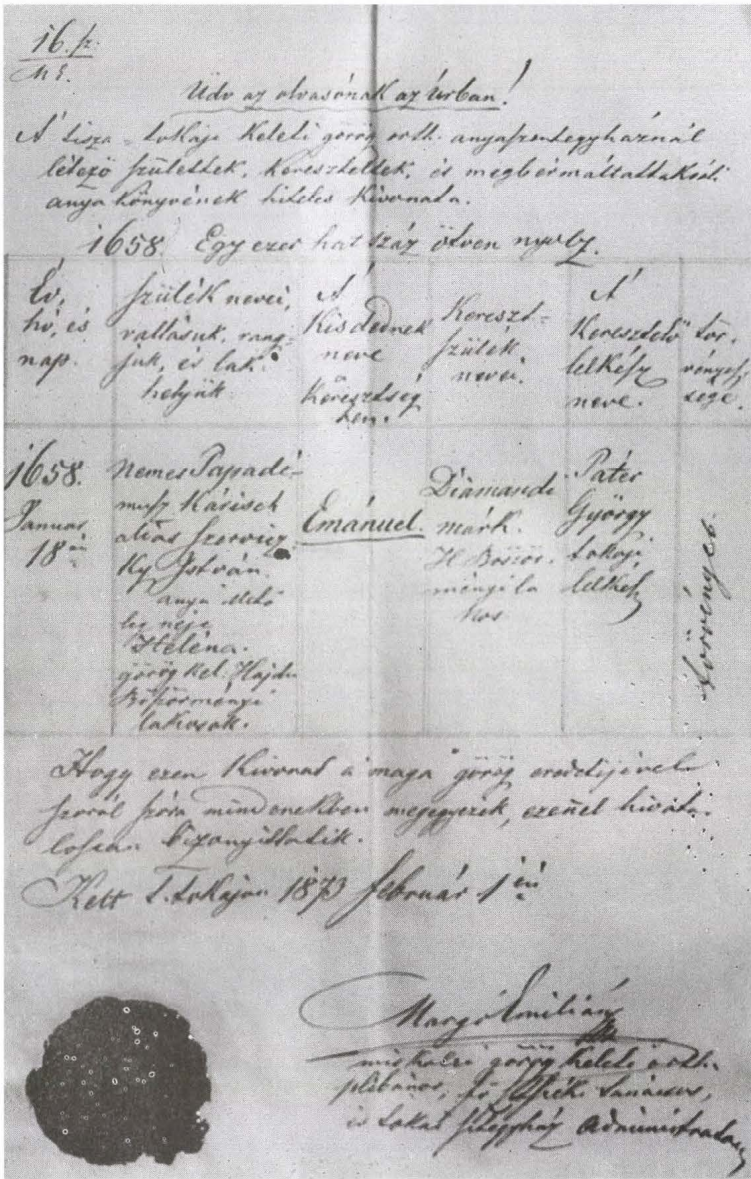 16. sz.
Üdv az olvasónak az Úrban!
A tisza-tokaji keleti görög orth. anyaszentegyháznál
létező születtek, kereszteltek, és megbérmáltattakróli
anyakönyvének hiteles kivonata.
1658. Egy ezer hat száz ötven nyolcz.
Év,
hó, és
nap.
szülék nevei,
vallásuk, rang-
juk, és lak-
helyük
A
kisdednek
neve
keresztség
ben.
Kereszt-
szülék
nevei.
A
keresztelő
lelkész
neve.
tör-
vényes-
sége.
1658.
Januar
18án
Nemes Papadi-
musz Kárisch
aliás Szervicz-
ky István.
anya
neje
Heléna.
görög kel. Hajdu
Böszörményi
lakosok.
Emánuel.
Diamandi
márk.
H Böször-
ményi la
kos
Páter
György
tokaji
lelkész
törvényes.
Hogy ezen kivonat a maga görög eredetijével
szóról szóra mindenekben megegyezik, ezennel hivata-
losan bizonyíttatik.
Kelt T. tokajon 1873 február 1én
Margó Emilián
miskolci görög keleti orth.
plébános, tanácsos,
és tokai administrator